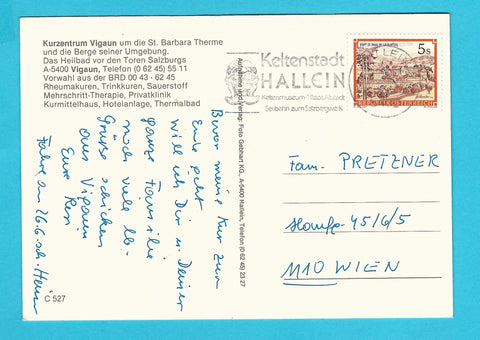 Kurzentrum Vigaun um die St. Barbara Therme
und die Berge seiner Umgebung.
Das Heilbad vor den Toren Salzburgs
A-5400 Vigaun, Telefon (0 62 45) 55 11
Vorwahl aus der BRD 00 43 · 62 45
Rheumakuren, Trinkkuren, Sauerstoff
Mehrschritt-Therapie, Privatklinik
Kurmittelhaus, Hotelanlage, Thermalbad
Bevor meine Kur zum
Ende geht
will ich Dir u. Deiner
ganze Familie
noch viele lb.
Grüße schicken
aus Vigaun
Eure
Resi
Fahre am 26.6. sch. Heim
C 527
Aufnahme und Verlag: Foto Gebhart KG., A-5400 Hallein, Telefon (0 62 45) 23 27
Keltenstadt
HALLEIN
Keltenmuseum
Seilbahn zum Salzbergwerk
5 S
REPUBLIK ÖSTERREICH
Fam. PRETZNER
45/6/5
1110 WIEN